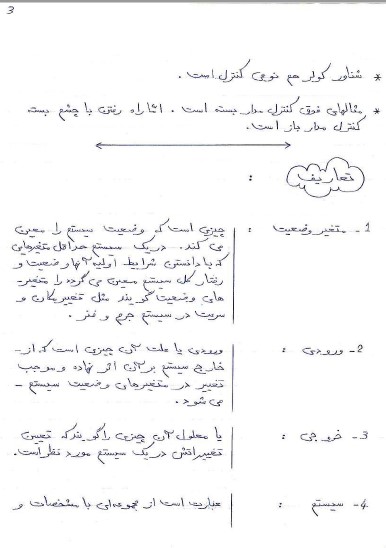 3
* شناور کولر هم نوعی کنترل است.
* مثالهای فوق کنترل مدار بسته است. اما راه رفتن با چشم بسته
کنترل مدار باز است.
تعاریف :
1- متغیر وضعیت : چیزی است که وضعیت سیستم را معین
می کند. در یک سیستم حداقل متغیرهایی
که با دانستن شرایط اولیه آنها وضعیت و
رفتار کل سیستم معین می گردد را متغیر-
های وضعیت گویند مثل تغییر مکان و
سرعت در سیستم جرم و فنر.
2- ورودی : ورودی یا علت آن چیزی است که از-
خارج سیستم بر آن اثر نهاده و موجب
تغییر در متغیرهای وضعیت سیستم -
می شود.
3- خروجی : یا معلول آن چیزی را گویند که تعیین
تغییراتش در یک سیستم مورد نظر است.
4- سیستم : عبارت است از مجموعه ای با مشخصات و